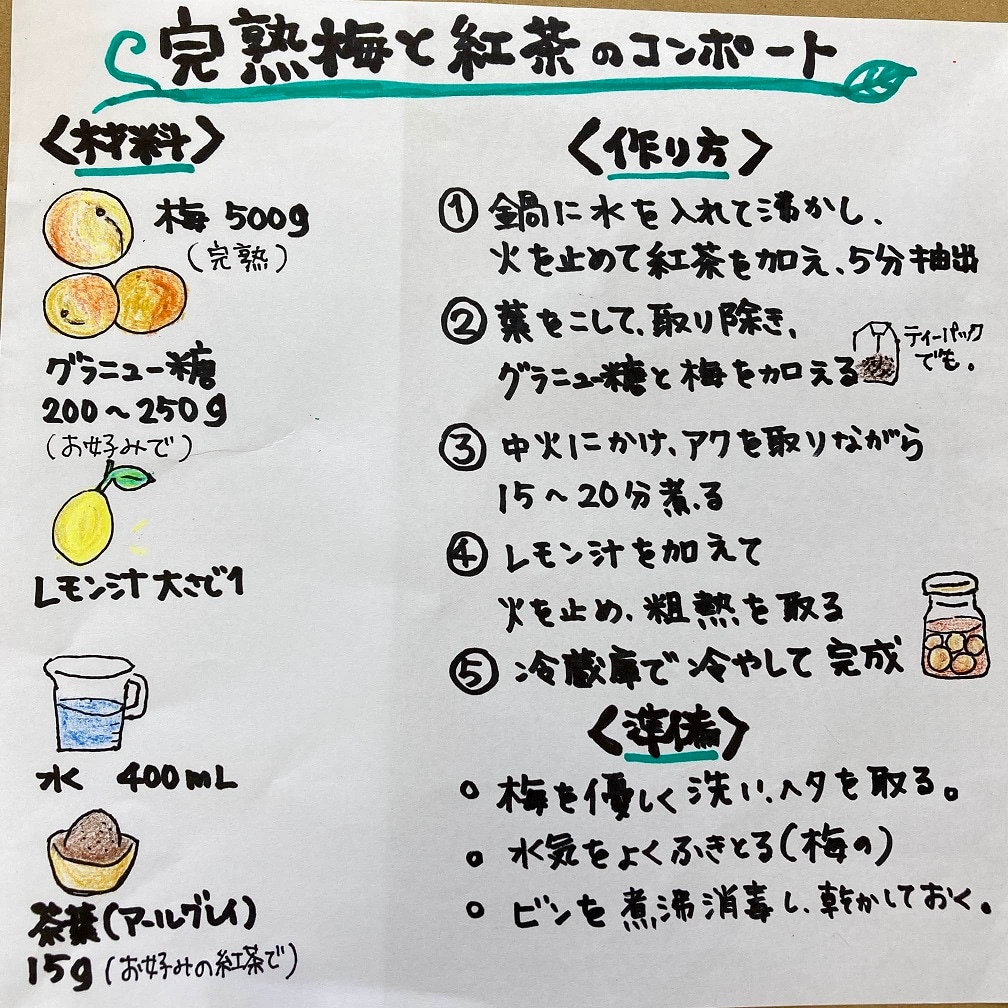 完熟梅と紅茶のコンポート
〈材料〉
梅 500g
(完熟)
グラニュー糖
200〜250g
(お好みで)
レモン汁 大さじ1
水 400mL
茶葉(アールグレイ)
15g(お好みの紅茶で)
〈作り方〉
① 鍋に水を入れて沸かし、
火を止めて紅茶を加え、5分抽出
② 葉をこして、取り除き、
グラニュー糖と梅を加える
ティーパック
でも。
③ 中火にかけ、アクを取りながら
15〜20分煮る
④ レモン汁を加えて
火を止め、粗熱を取る
⑤ 冷蔵庫で冷やして完成
〈準備〉
○ 梅を優しく洗い、ヘタを取る。
○ 水気をよくふきとる(梅の)
○ ビンを煮沸消毒し、乾かしておく。